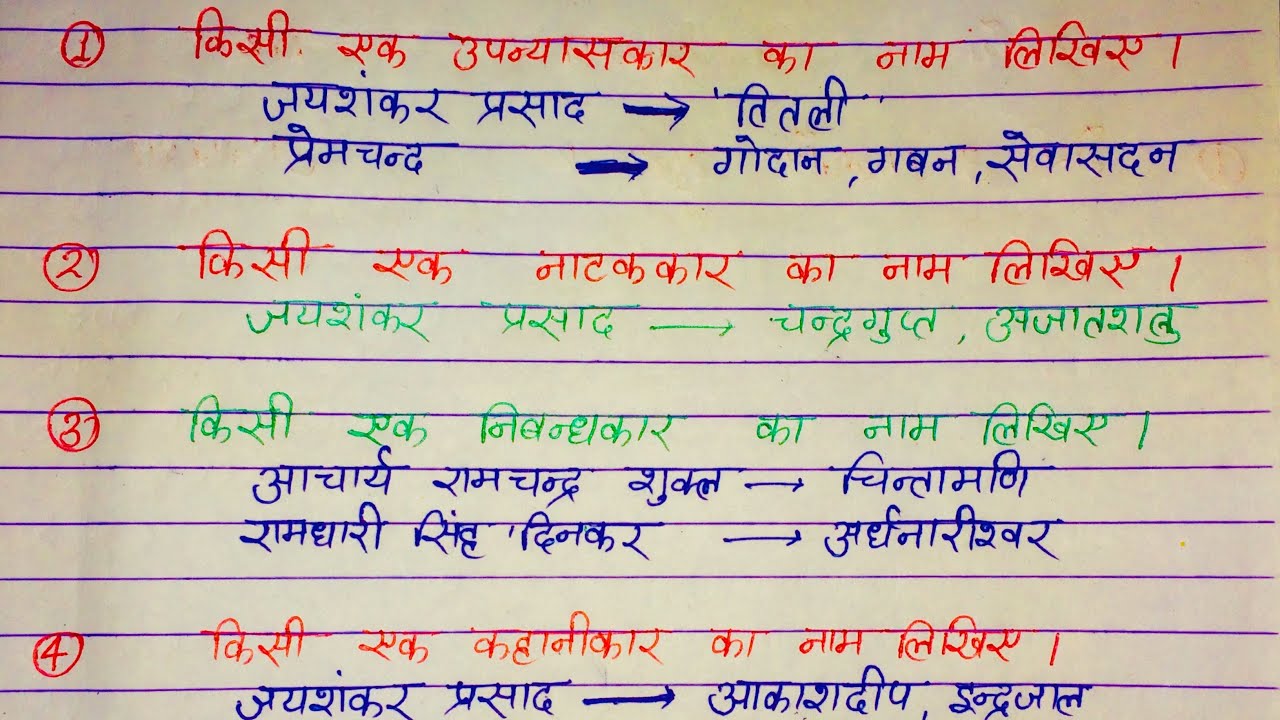 ① किसी एक उपन्यासकार का नाम लिखिए।
जयशंकर प्रसाद → 'तितली'
प्रेमचन्द → गोदान, गबन, सेवासदन
② किसी एक नाटककार का नाम लिखिए।
जयशंकर प्रसाद → चन्द्रगुप्त, अजातशत्रु
③ किसी एक निबन्धकार का नाम लिखिए।
आचार्य रामचन्द्र शुक्ल → चिन्तामणि
रामधारी सिंह 'दिनकर → अर्धनारीश्वर
④ किसी एक कहानीकार का नाम लिखिए।
जयशंकर प्रसाद → आकाशदीप, इन्द्रजाल